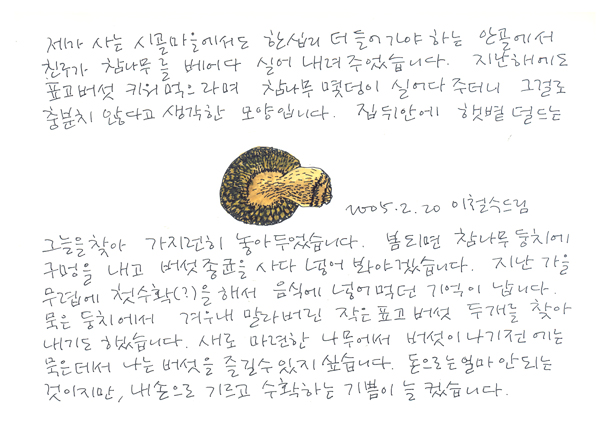 제가 사는 시골마을에서도 한십리 더 들어가야 하는 안골에서
친구가 참나무를 베어다 실어 내려 주었습니다. 지난해에도
표고버섯 키워 먹으라며 참나무 몇덩이 실어다 주더니 그걸로
충분치 않다고 생각한 모양입니다. 집뒤안에 햇볕 덜드는
2005.2.20 이철수드림
그늘을 찾아 가지런히 놓아두었습니다. 봄되면 참나무둥치에
구멍을 내고 버섯종균을 사다 넣어 봐야겠습니다. 지난 가을
무렵에 첫수확(?)을 해서 음식에 넣어먹던 기억이 납니다.
묵은 둥치에서 겨우내 말라버린 작은표고버섯 두개를 찾아
내기도 했습니다. 새로 마련한 나무에서 버섯이 나기전에는
묵은데서 나는 버섯을 즐길수 있지 싶습니다. 돈으로는 얼마 안되는
것이지만, 내손으로 기르고 수확하는 기쁨이 늘 컸습니다.